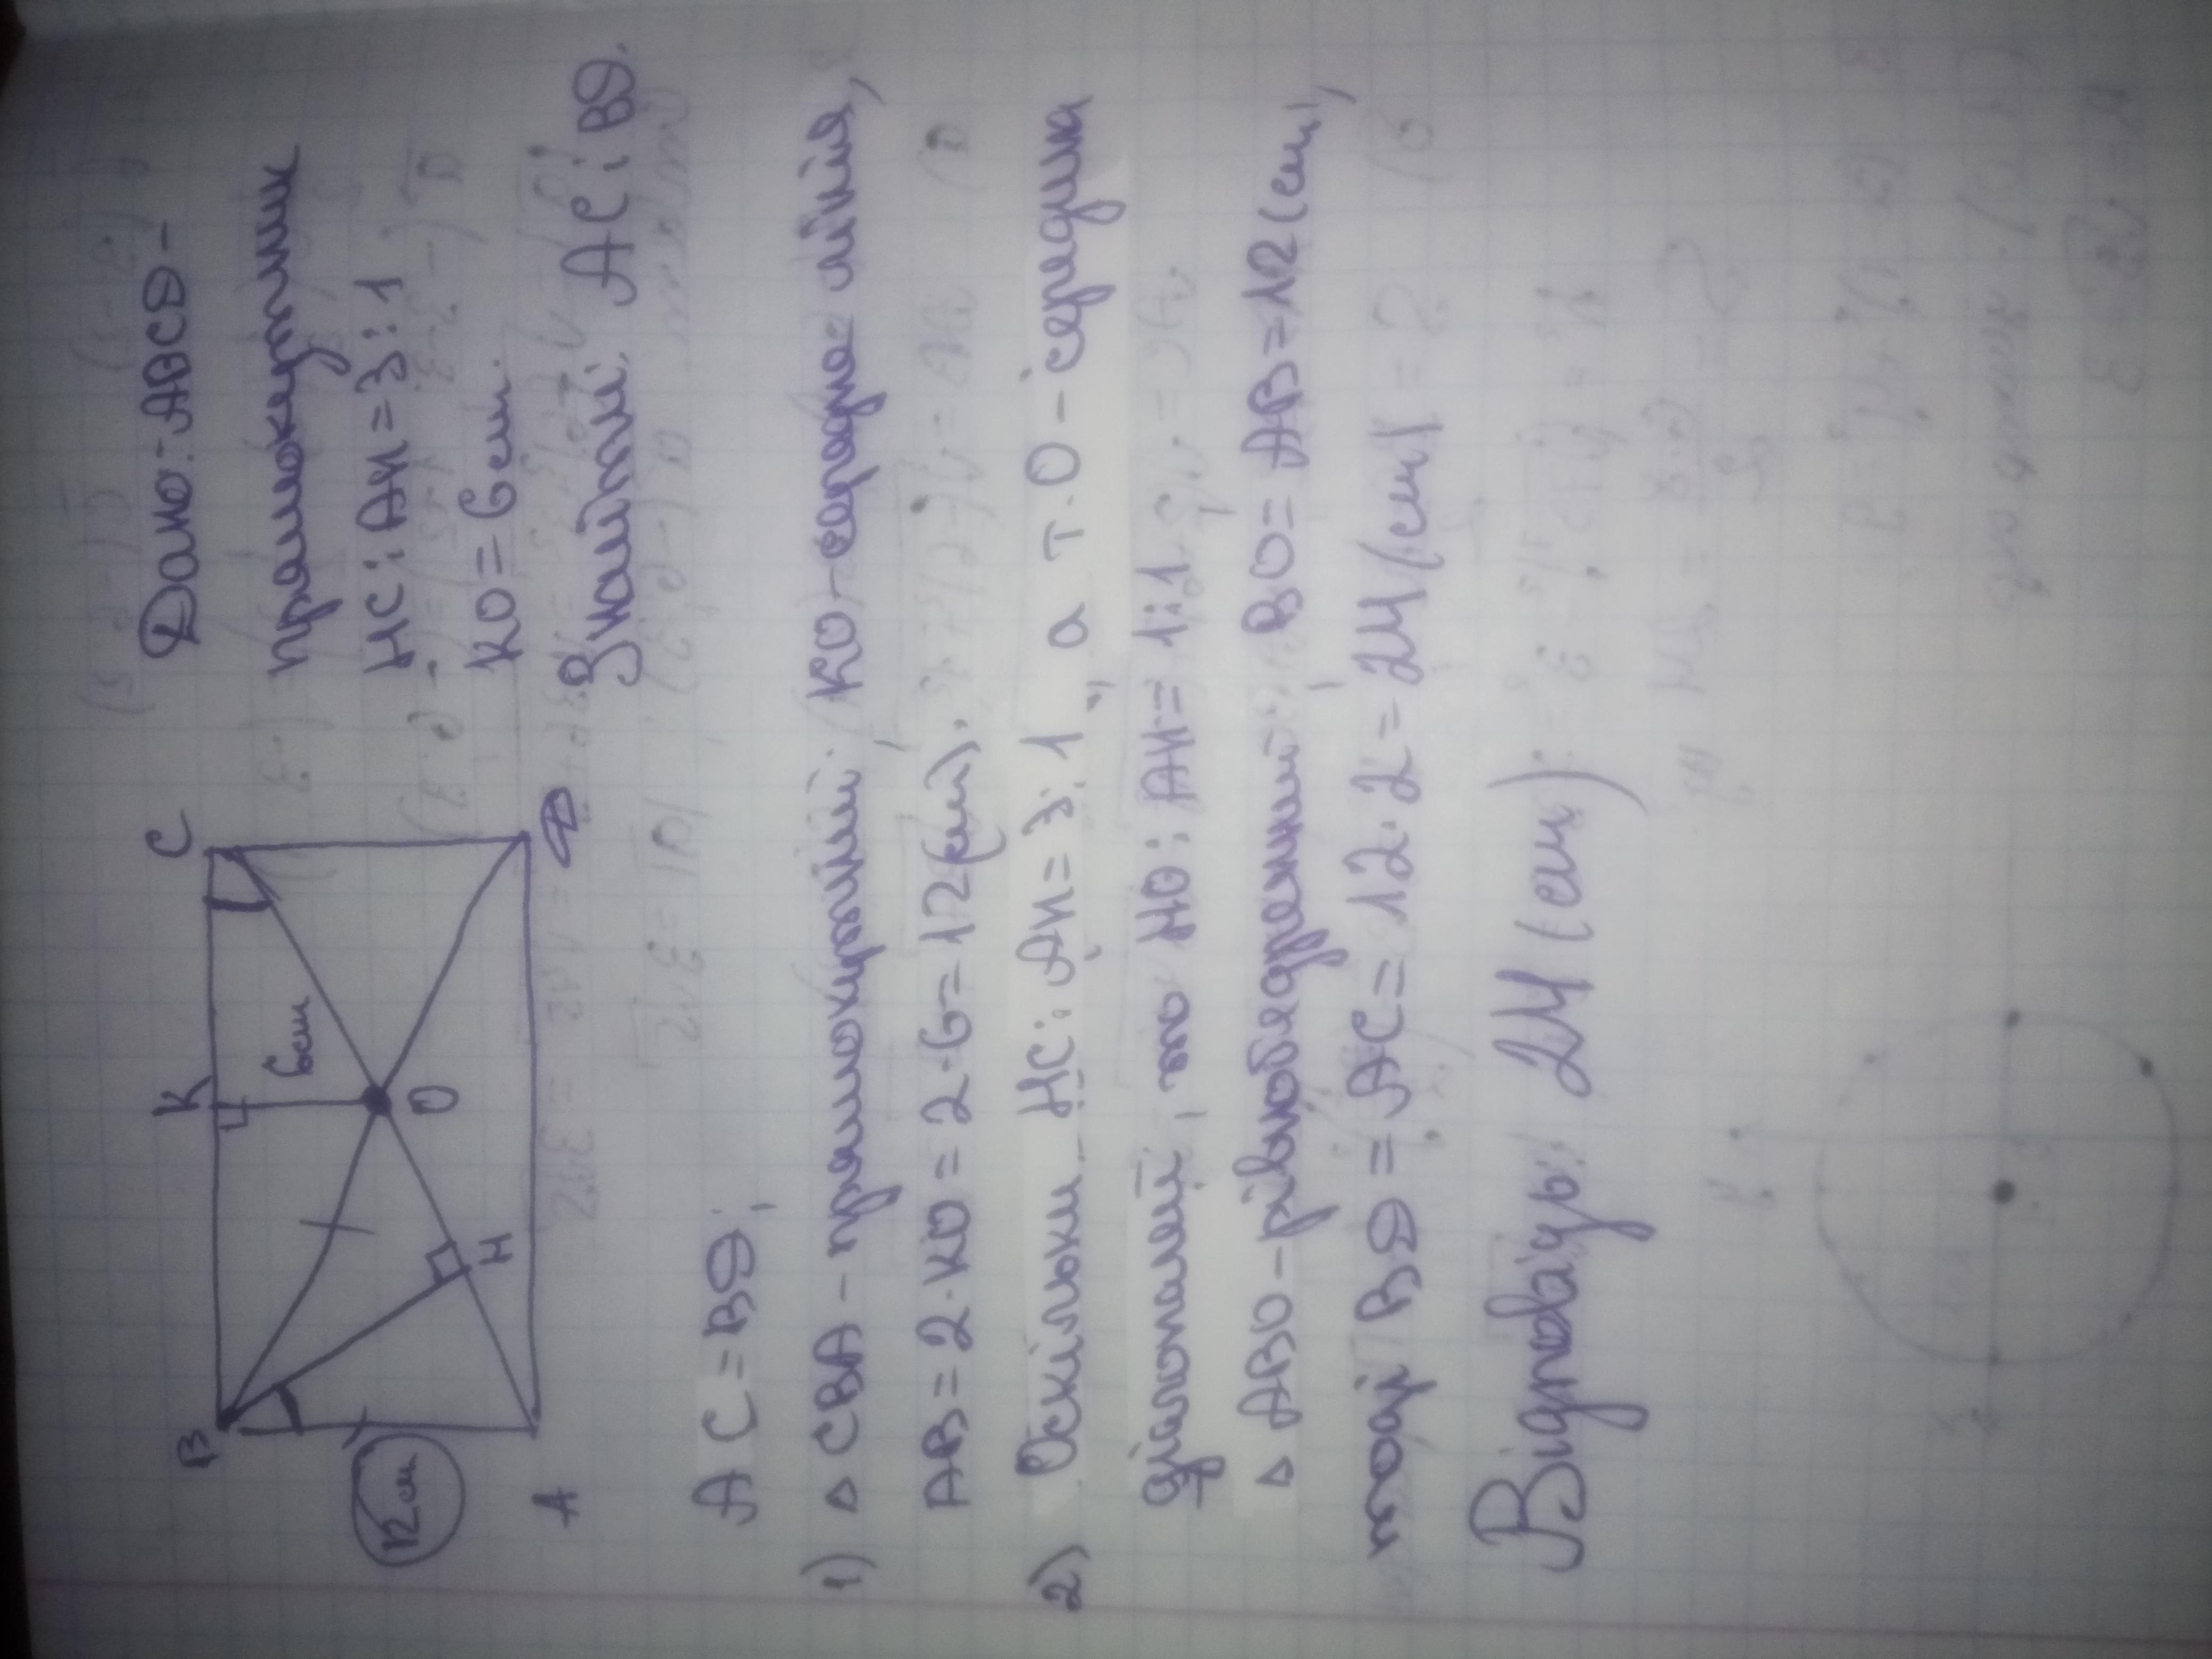 Дано: ABCD -
прямокутник
HC : AH = 3 : 1
KO = 6 см.
Знайти: AC i BD.
B
K
C
6см
12см
O
H
A
D
AC = BD;
1) △ CBA - прямокутний; KO - середнє лінія,
AB = 2·KO = 2·6 = 12(см).
2) Оскільки HC : AH = 3 : 1, а т. O - середина
діагоналі, то HO : AH = 1:1
△ ABO - рівнобедренний, BO = AB = 12 (см),
тоді BD = AC = 12·2 = 24 (см)
Відповідь: 24 (см)